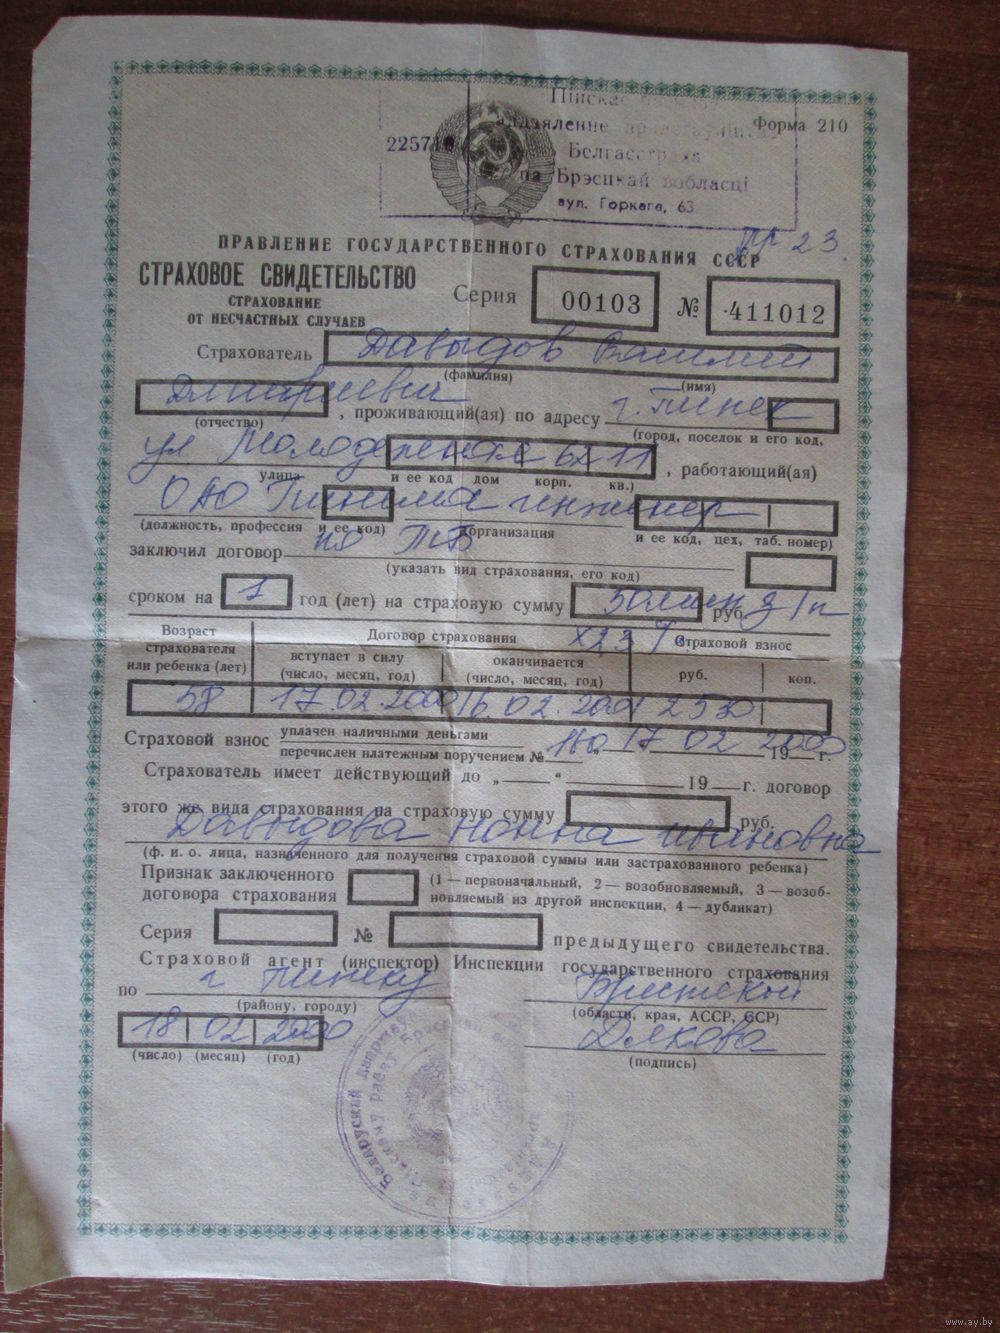 Пінскае
аддзяленне прадстаўніцтва
225710
Белгасстраха
па Брэсцкай вобласці
вул. Горкага, 63
Форма 210
пр 23.
ПРАВЛЕНИЕ ГОСУДАРСТВЕННОГО СТРАХОВАНИЯ СССР
СТРАХОВОЕ СВИДЕТЕЛЬСТВО
СТРАХОВАНИЕ
ОТ НЕСЧАСТНЫХ СЛУЧАЕВ
Серия 00103 № 411012
Страхователь Давыдов Василий
(фамилия) (имя)
Дмитриевич, проживающий(ая) по адресу г. Пинск
(отчество) (город, поселок и его код,
ул Молодежная 62 11, работающий(ая)
улица и ее код дом корп. кв.)
ОАО Пинема инженер
(должность, профессия и ее код) организация и ее код, цех, таб. номер)
по ТБ
заключил договор
(указать вид страхования, его код)
сроком на 1 год (лет) на страховую сумму 50млн руб.
Возраст страхователя или ребенка (лет)
Договор страхования
вступает в силу (число, месяц, год)
оканчивается (число, месяц, год)
Страховой взнос
руб. коп.
58 17.02.2000 16.02.2001 2530
Страховой взнос уплачен наличными деньгами
перечислен платежным поручением № 160 17 02 2000 19 г.
Страхователь имеет действующий до „ “ 19 г. договор
этого же вида страхования на страховую сумму руб.
Давыдова Нонна Ивановна
(ф. и. о. лица, назначенного для получения страховой суммы или застрахованного ребенка)
Признак заключенного договора страхования
(1 — первоначальный, 2 — возобновляемый, 3 — возоб-
новляемый из другой инспекции, 4 — дубликат)
Серия № предыдущего свидетельства.
Страховой агент (инспектор) Инспекции государственного страхования
по г Пинску Брестской
(району, городу) (области, края, АССР, ССР)
18 02 2000
(число) (месяц) (год) (подпись)
www.ay.by